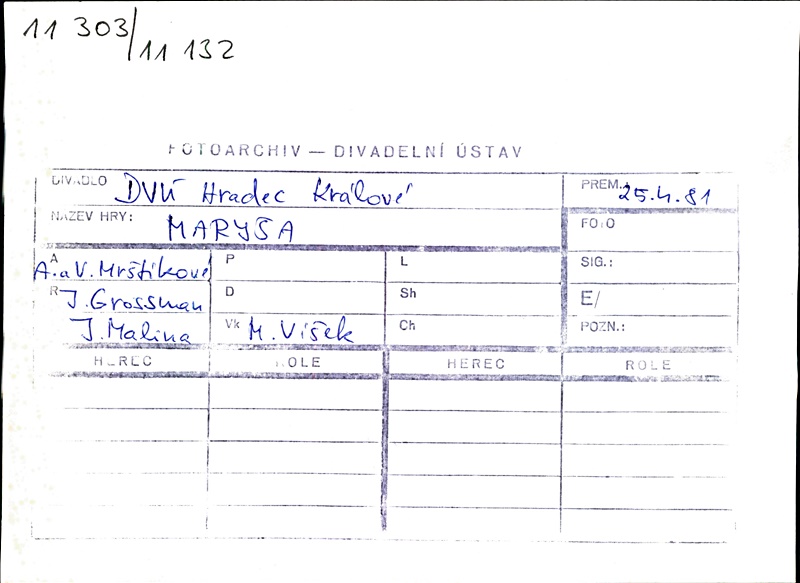 11 303/11 132
FOTOARCHIV — DIVADELNÍ ÚSTAV
DIVADLO DVÚ Hradec Králové PREM.: 25.4.81
NÁZEV HRY: MARYŠA FOTO
A A. a V. Mrštíkové P L SIG.:
R J. Grossman D Sh E/
J. Malina Vk M. Víšek Ch POZN.:
HEREC ROLE HEREC ROLE